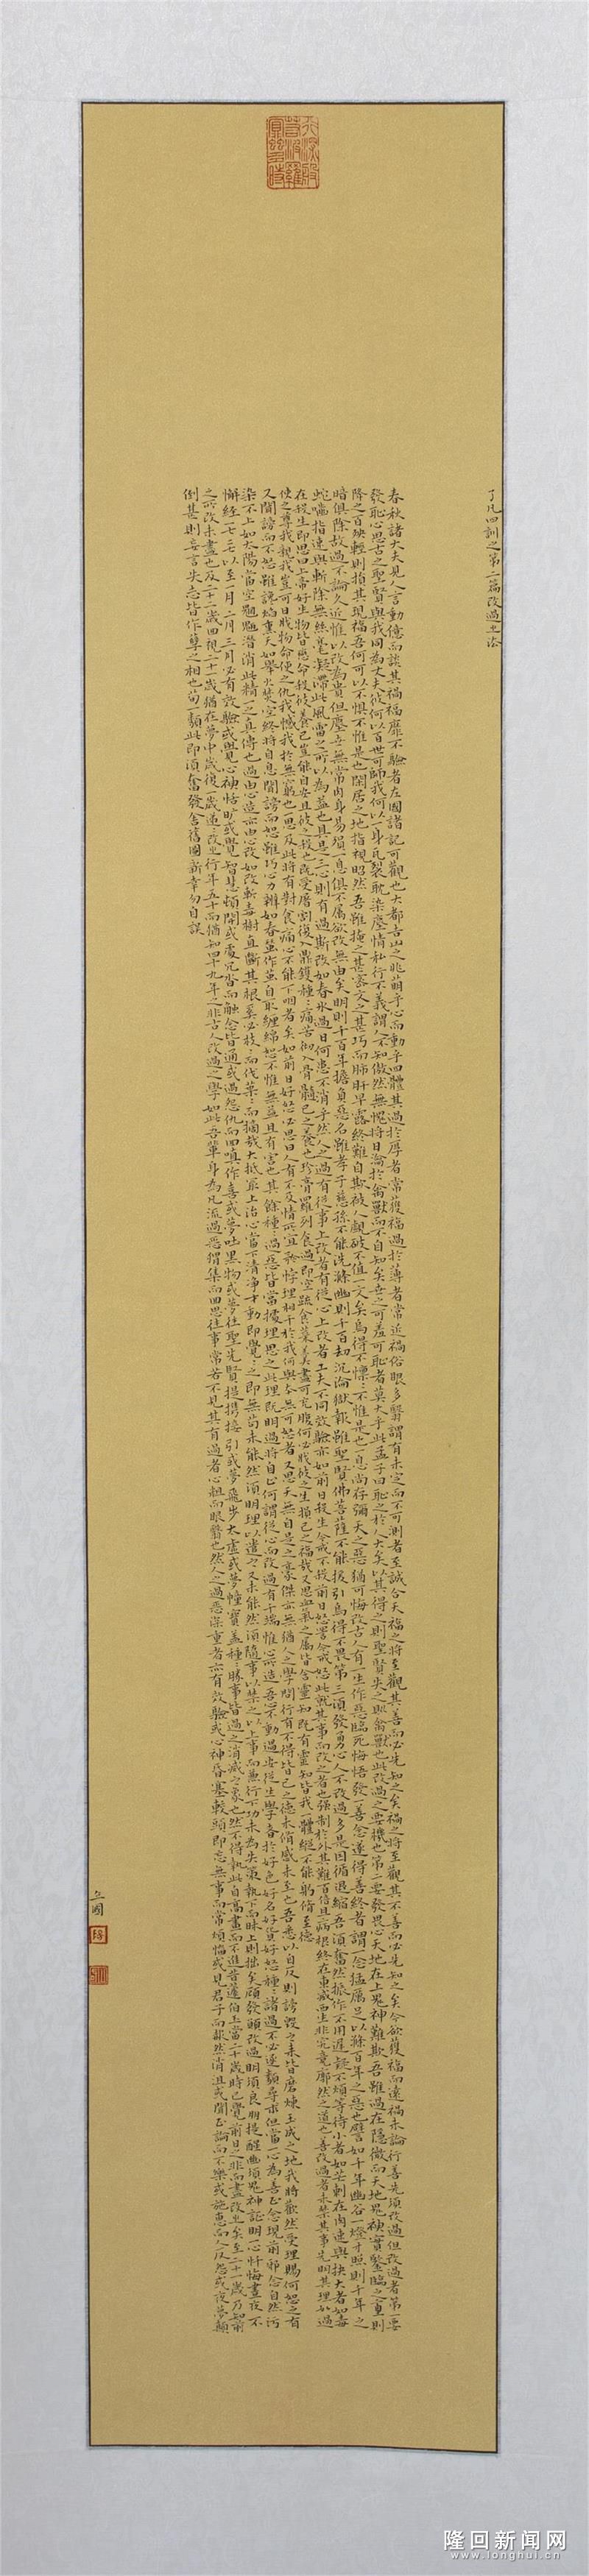 了凡四訓之第二篇改過之法
春秋諸大夫見人言動億而談其禍福靡不驗者左國諸記可觀也大都吉凶之兆萌乎心而動乎四體其過於厚者常獲福過於薄者常近禍俗眼多翳謂有未定而不可測者至誠合天福之將至觀其善而必先知之矣禍之將至觀其不善而必先知之矣今欲獲福而遠禍未論行善先須改過但改過者第一要
發恥心思古之聖賢與我同為丈夫彼何以百世可師我何以一身瓦裂耽染塵情私行不義謂人不知傲然無愧將日淪於禽獸而不自知矣世之可羞可恥者莫大乎此孟子曰恥之於人大矣以其得之則聖賢失之則禽獸也此改過之要機也第二要發畏心天地在上鬼神難欺吾雖過在隱微而天地鬼神實鑒臨之重則
降之百殃輕則損其現福吾何可以不懼不惟是也閑居之地指視昭然吾雖掩之甚密文之甚巧而肺肝早露終難自欺被人覷破不值一文矣烏得不懍懍不惟是也一息尚存彌天之惡猶可悔改古人有一生作惡臨死悔悟發一善念遂得善終者謂一念猛厲足以滌百年之惡也譬如千年幽谷一燈才照則千年之
暗俱除故過不論久近惟以改為貴但塵世無常肉身易殞一息俱不屬欲改無由矣明則千百年擔負惡名雖孝子慈孫不能洗滌幽則千百劫沉淪獄報雖聖賢佛菩薩不能援引烏得不畏第三須發勇心人不改過多是因循退縮吾須奮然振作不用遲疑不煩等待小者如芒刺在肉速與抉大者如毒
蛇嚙指速與斬除無絲毫凝滯此風雷之所以為益也具是三心則有過斯改如春冰遇日何患不消乎然人之過有從事上改者有從心上改者工夫不同效驗亦如前日殺生今戒不殺前日怒詈今戒怒此就其事而改之者也強制於外其難百倍且病根終在東滅西生非究竟廓然之道也善改過者未禁其事先明其理如過
在殺生即思曰上帝好生物皆戀命殺彼養己豈能自安且彼之殺也既受屠割復入鼎鑊種種痛苦徹入骨髓己之養也珍膏羅列食過即空疏食菜羹盡可充腹何必戕彼之生損己之福哉又思血氣之屬皆含靈知既有靈知皆我一體縱不能躬脩至德
使之尊我親我豈可日戕物命使之仇我憾我於無窮也一思及此將有對食痛心不能下咽者矣如前日好怒必思曰人有不及情所宜矜悖理相干於我何與本無可怒者又思天無自是之豪傑亦無猶人之學問行有不得皆己之德未脩感未至也吾悉以自反則謗毀之來皆磨煉玉成之地我將歡然受理賜何怒之有
又聞謗而不怒雖讒焰熏天如舉火焚空終將自息聞謗而怒雖巧心力辨如春蠶作繭自取纏綿怒不惟無益且有害也其餘種種過惡皆當據理思之此理既明過將自止何謂從心而改過有千端惟心所造吾心不動過安從生學者於好色好名好貨好怒種種諸過不必逐類尋求但當一心為善正念現前邪念自然污
染不上如太陽當空魍魎潛消此精一之真傳也過由心造亦由心改如改斬毒樹直斷其根奚必枝枝而伐葉葉而摘哉大抵最上治心當下清淨才動即覺覺之即無苟未能然須明理以遣之又未能然須隨事以禁之以上事而兼行下功未為失策執下而昧上則拙矣顧發願改過明須良朋提醒幽須鬼神証明一心忏悔晝夜不
懈經一七二七以至一月二月三月必有效驗或覺心神恬曠或覺智慧頓開或處冗沓而觸念皆通或遇怨仇而回嗔作喜或夢吐黑物或夢往聖先賢提攜接引或夢飛步太虛或夢幢寶蓋種種勝事皆過之消滅之象也然不得執此自高畫而不進昔蘧伯玉當二十歲時已覺前日之非而盡改之矣至二十一歲乃知前
之所改未盡也及二十二歲回視二十一歲猶在夢中歲復一歲遞遞改之行年五十而猶知四十九年之非古人改過之學如此吾輩身為凡流過惡猬集而回思往事常若不見其有過者心粗而眼翳也然人之過惡深重者亦有效驗或心神昏塞轉頭即忘無事而常煩惱或見君子而赧然消沮或聞正論而不樂或施惠而人反怨或夜夢顛
倒甚則妄言失志皆作孽之相也苟一類此即須奮發舍舊圖新幸勿自誤
立國
隆回新聞網
www.longhui.cn